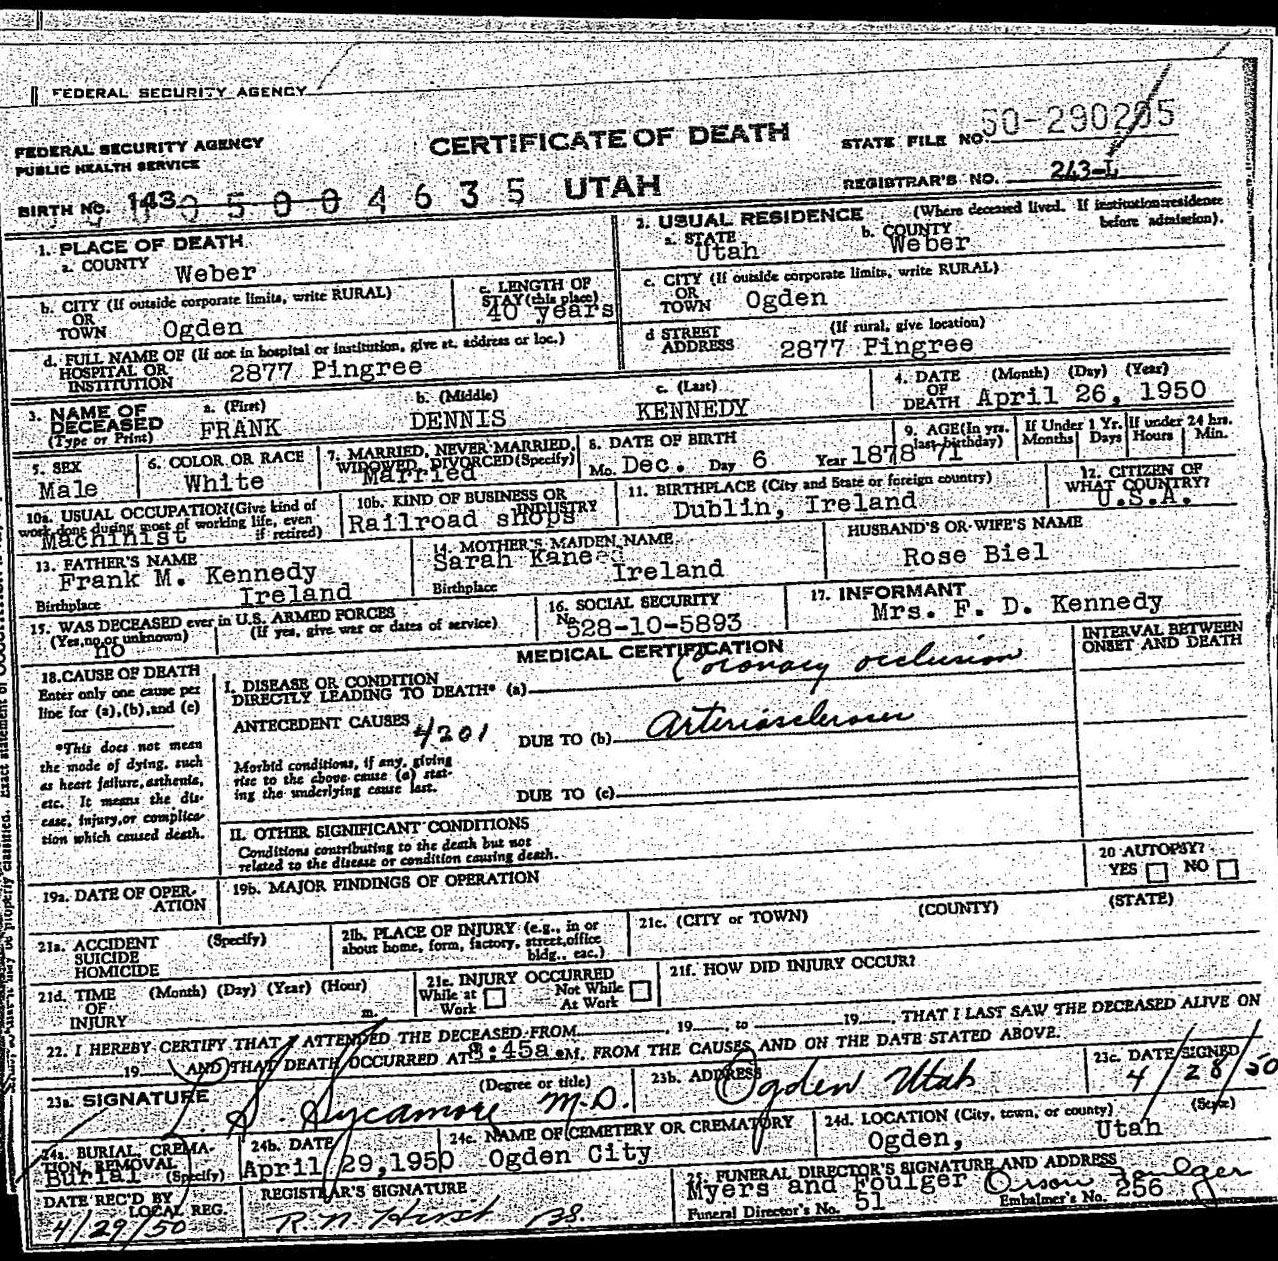 FEDERAL SECURITY AGENCY
FEDERAL SECURITY AGENCY
PUBLIC HEALTH SERVICE
CERTIFICATE OF DEATH
STATE FILE NO. 50-290205
BIRTH No. 143
0 5 0 0 4 6 3 5 UTAH
REGISTRAR'S NO. 243-L
1. PLACE OF DEATH
a. COUNTY Weber
2. USUAL RESIDENCE (Where deceased lived. If institution: residence before admission).
a. STATE Utah
b. COUNTY Weber
b. CITY (If outside corporate limits, write RURAL)
OR
TOWN Ogden
c. LENGTH OF
STAY (this place)
40 years
c. CITY (If outside corporate limits, write RURAL)
OR
TOWN Ogden
d. FULL NAME OF (If not in hospital or institution, give st. address or loc.)
HOSPITAL OR
INSTITUTION 2877 Pingree
d STREET (If rural, give location)
ADDRESS 2877 Pingree
3. NAME OF
DECEASED
(Type or Print)
a. (First)
FRANK
b. (Middle)
DENNIS
c. (Last)
KENNEDY
4. DATE (Month) (Day) (Year)
OF
DEATH April 26, 1950
5. SEX
Male
6. COLOR OR RACE
White
7. MARRIED, NEVER MARRIED,
WIDOWED, DIVORCED (Specify)
Married
8. DATE OF BIRTH
Mo. Dec. Day 6 Year 1878
9. AGE (In yrs.
last birthday)
71
If Under 1 Yr.
Months Days
If under 24 hrs.
Hours Min.
10a. USUAL OCCUPATION (Give kind of
work done during most of working life, even
if retired)
Machinist
10b. KIND OF BUSINESS OR
INDUSTRY
Railroad shops
11. BIRTHPLACE (City and State or foreign country)
Dublin, Ireland
12. CITIZEN OF
WHAT COUNTRY?
U.S.A.
13. FATHER'S NAME
Frank M. Kennedy
Birthplace Ireland
14. MOTHER'S MAIDEN NAME
Sarah Kane
Birthplace Ireland
HUSBAND'S OR WIFE'S NAME
Rose Biel
15. WAS DECEASED ever in U.S. ARMED FORCES
(Yes, no, or unknown) (If yes, give war or dates of service)
no
16. SOCIAL SECURITY
No.
528-10-5893
17. INFORMANT
Mrs. F. D. Kennedy
18. CAUSE OF DEATH
Enter only one cause per
line for (a), (b), and (c)
*This does not mean
the mode of dying, such
as heart failure, asthenia,
etc. It means the dis-
ease, injury, or complica-
tion which caused death.
MEDICAL CERTIFICATION
INTERVAL BETWEEN
ONSET AND DEATH
I. DISEASE OR CONDITION
DIRECTLY LEADING TO DEATH* (a) Coronary occlusion
ANTECEDENT CAUSES 4201
DUE TO (b) Arteriosclerosis
Morbid conditions, if any, giving
rise to the above cause (a) stat-
ing the underlying cause last.
DUE TO (c)
II. OTHER SIGNIFICANT CONDITIONS
Conditions contributing to the death but not
related to the disease or condition causing death.
19a. DATE OF OPER-
ATION
19b. MAJOR FINDINGS OF OPERATION
20 AUTOPSY?
YES NO
21a. ACCIDENT (Specify)
SUICIDE
HOMICIDE
21b. PLACE OF INJURY (e.g., in or
about home, form, factory, street, office
bldg., etc.)
21c. (CITY or TOWN) (COUNTY) (STATE)
21d. TIME (Month) (Day) (Year) (Hour)
OF
INJURY m.
21e. INJURY OCCURRED
While at Work
Not While At Work
21f. HOW DID INJURY OCCUR?
22. I HEREBY CERTIFY THAT I ATTENDED THE DECEASED FROM , 19 , to 19 , THAT I LAST SAW THE DECEASED ALIVE ON
19 AND THAT DEATH OCCURRED AT 3:45a.M. FROM THE CAUSES AND ON THE DATE STATED ABOVE.
23a. SIGNATURE (Degree or title)
Sycamore M.D.
23b. ADDRESS
Ogden Utah
23c. DATE SIGNED
4/28/50
24a. BURIAL, CREMA-
TION, REMOVAL
(Specify)
Burial
24b. DATE
April 29, 1950
24c. NAME OF CEMETERY OR CREMATORY
Ogden City
24d. LOCATION (City, town, or county) (State)
Ogden, Utah
DATE REC'D BY
LOCAL REG.
4/29/50
REGISTRAR'S SIGNATURE
R. N. Hirst
25. FUNERAL DIRECTOR'S SIGNATURE AND ADDRESS
Myers and Foulger Orson Foulger
Funeral Director's No. 51 Embalmer's No. 256